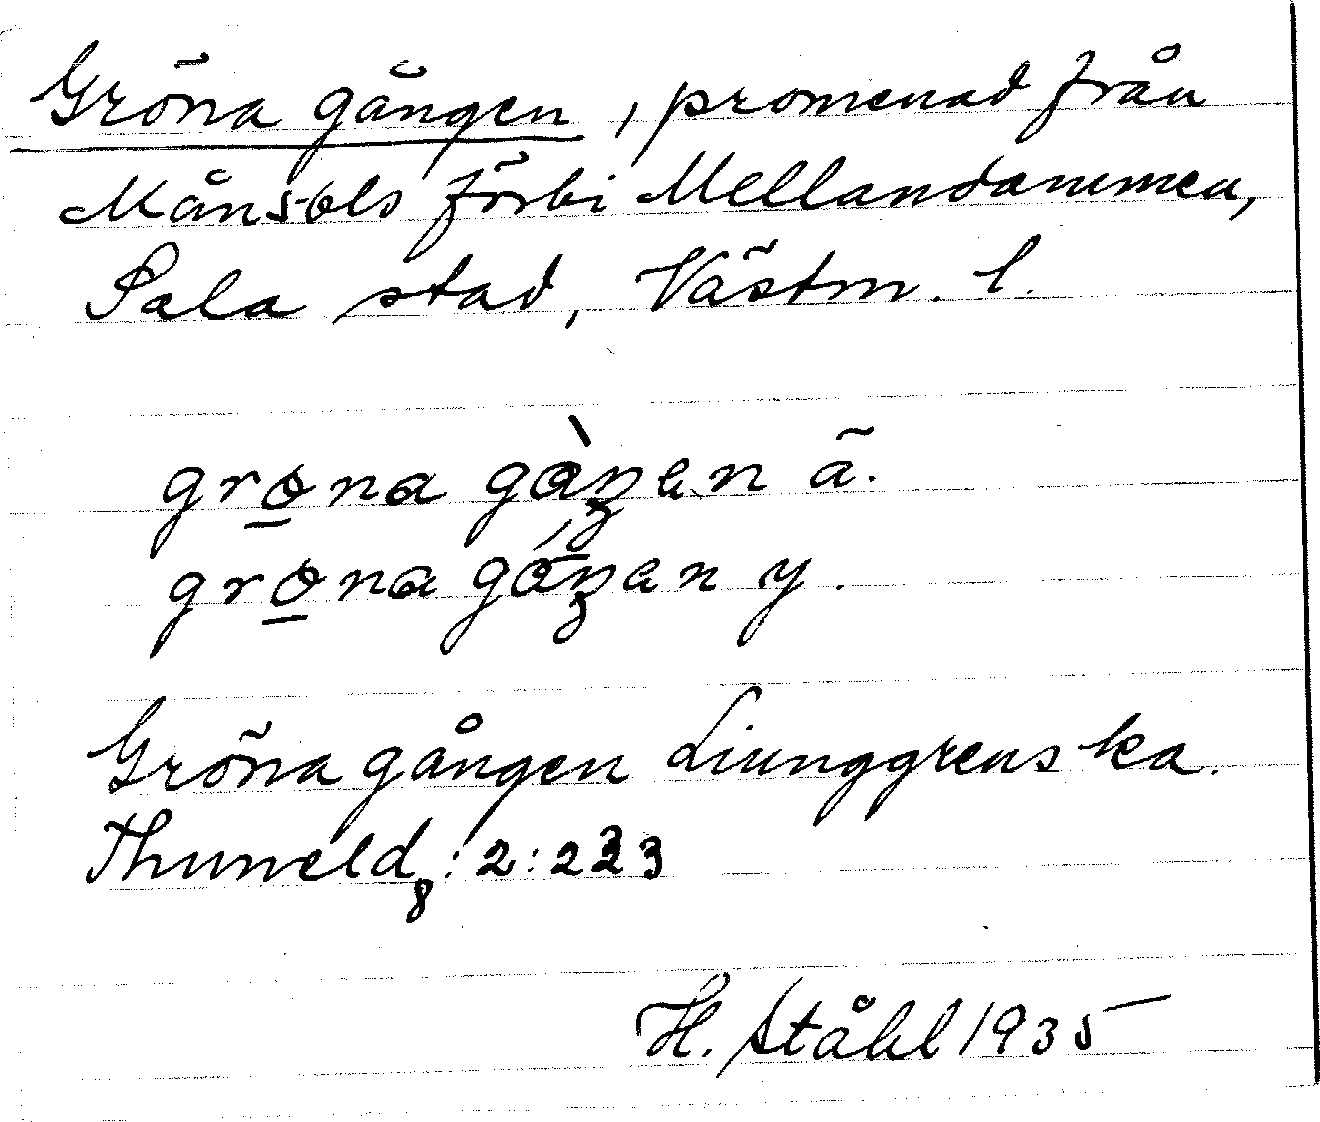 Gröna gången, promenad från
Måns-ols förbi Mellandammen,
Sala stad, Västm. l.
grø̱na gàŋen ä.
grø̱na gáŋen y.
Gröna gången Liunggrens ka.
Thuneld 8: 2: 223
H. Ståhl 1935